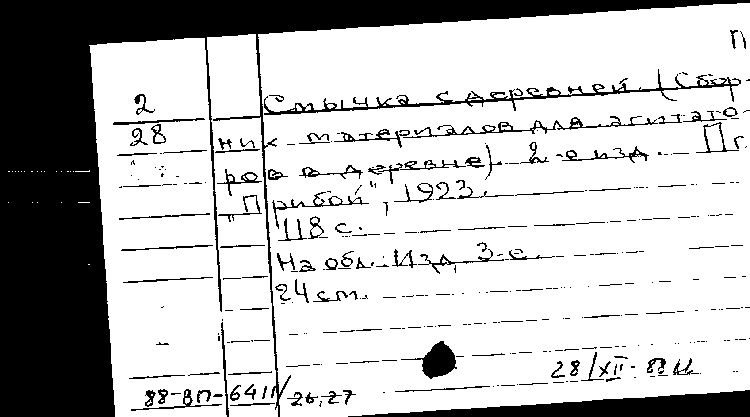 П
2 Смычка с деревней. (Сбор-
28 ник материалов для агитато-
ров в деревне). 2-е изд. Пг
"Прибой", 1923.
118 с.
На обл.: Изд. 3-е.
24 см.
28/XII-88
88-ВП-6411/26,27